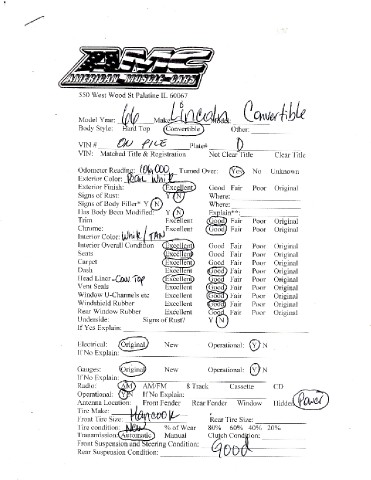 AMC
AMERICAN MUSCLE CARS
550 West Wood St Palatine IL 60067
Model Year: 66 Make: Lincoln Convertible
Body Style: Hard Top Convertible Other:
VIN # ON FILE Plate# D
VIN: Matched Title & Registration Not Clear Title Clear Title
Odometer Reading: 106,000 Turned Over: Yes No Unknown
Exterior Color: White
Exterior Finish: Excellent Good Fair Poor Original
Signs of Rust: Y N Where:
Signs of Body Filler* Y N Where:
Has Body Been Modified: Y N Explain**:
Trim Excellent Good Fair Poor Original
Chrome: Excellent Good Fair Poor Original
Interior Color: White / TAN
Interior Overall Condition Excellent Good Fair Poor Original
Seats Excellent Good Fair Poor Original
Carpet Excellent Good Fair Poor Original
Dash Excellent Good Fair Poor Original
Head Liner - Conv Top Excellent Good Fair Poor Original
Vent Seals Excellent Good Fair Poor Original
Window U-Channels etc Excellent Good Fair Poor Original
Windshield Rubber Excellent Good Fair Poor Original
Rear Window Rubber Excellent Good Fair Poor Original
Underside: Signs of Rust? Y N
If Yes Explain:
Electrical: Original New Operational: Y N
If No Explain:
Gauges: Original New Operational: Y N
If No Explain:
Radio: AM AM/FM 8 Track Cassette CD
Operational: Y N If No Explain:
Antenna Location: Front Fender Rear Fender Window Hidden Power
Tire Make: Hancook
Front Tire Size: Rear Tire Size:
Tire condition: New % of Wear 80% 60% 40% 20%
Transmission Automatic Manual Clutch Condition:
Front Suspension and Steering Condition: Good
Rear Suspension Condition: